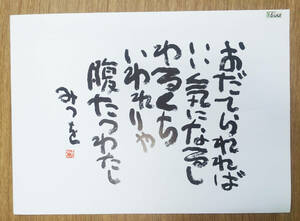 おだてられれば
いい気になるし
わるくち
いわれりゃ
腹たつわたし
みつを